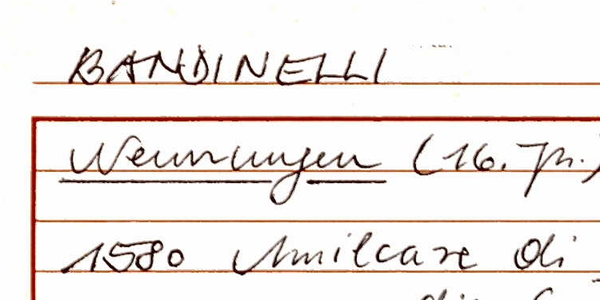 BANDINELLI
Nennungen (16. Jh.)
1580 Amilcare di